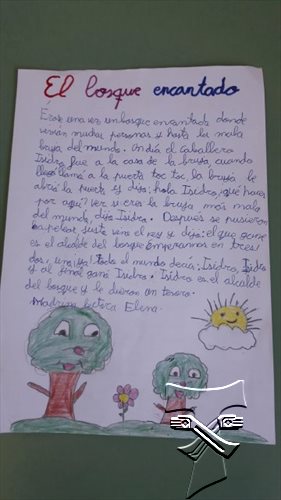 El bosque encantado
Érase una vez un bosque encantado donde
venían muchas personas y hasta la mala
bruja del mundo. Un día el caballero
Isidro fue a la casa de la bruja, cuando
llegó llamó a la puerta toc toc la bruja le
abrió la puerta y dijo: hola Isidro, ¿qué haces
por aquí? Ver si eres la bruja más mala
del mundo, dijo Isidro. Después se pusieron
a pelear, justo vino el rey y dijo: el que gane
es el alcalde del bosque empezamos en tres,
dos, uno ¡ya! Todo el mundo decía: ¡Isidro, Isidro
y al final ganó Isidro. Isidro es el alcalde
del bosque y le dieron un tesoro.
Madrina lectora Elena.